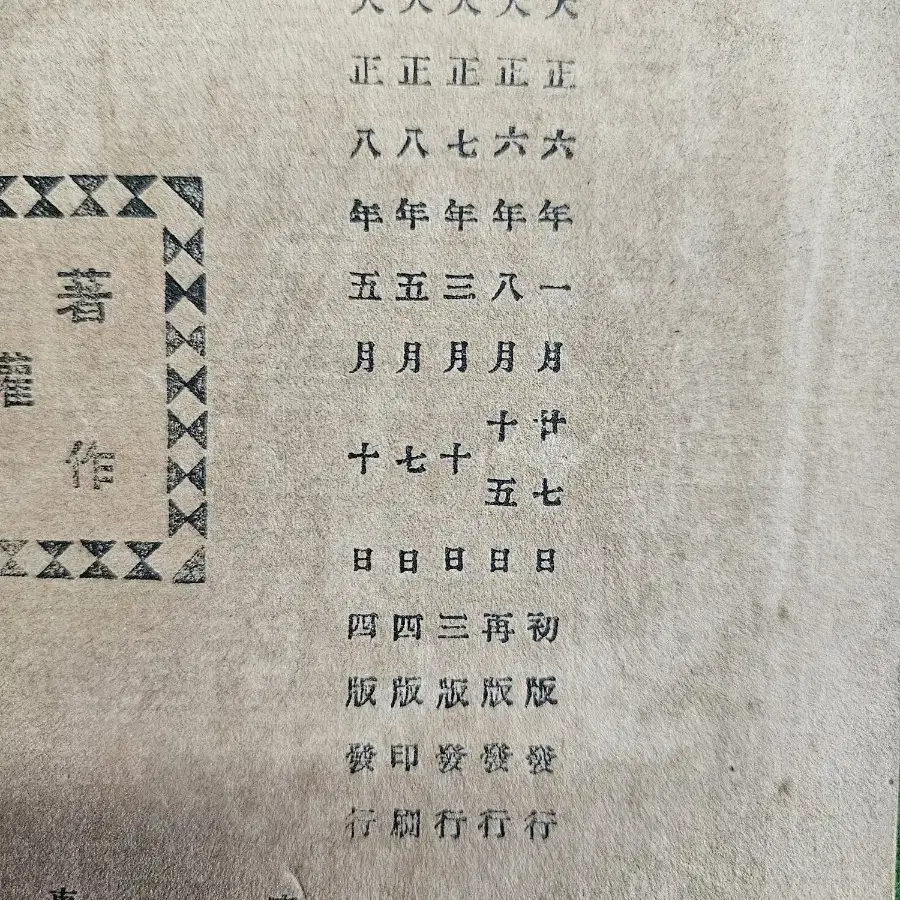 大正六年一月廿七日初版發行
大正六年八月十五日再版發行
大正七年三月十日三版發行
大正八年五月七日四版印刷
大正八年五月十日四版發行
著作
權